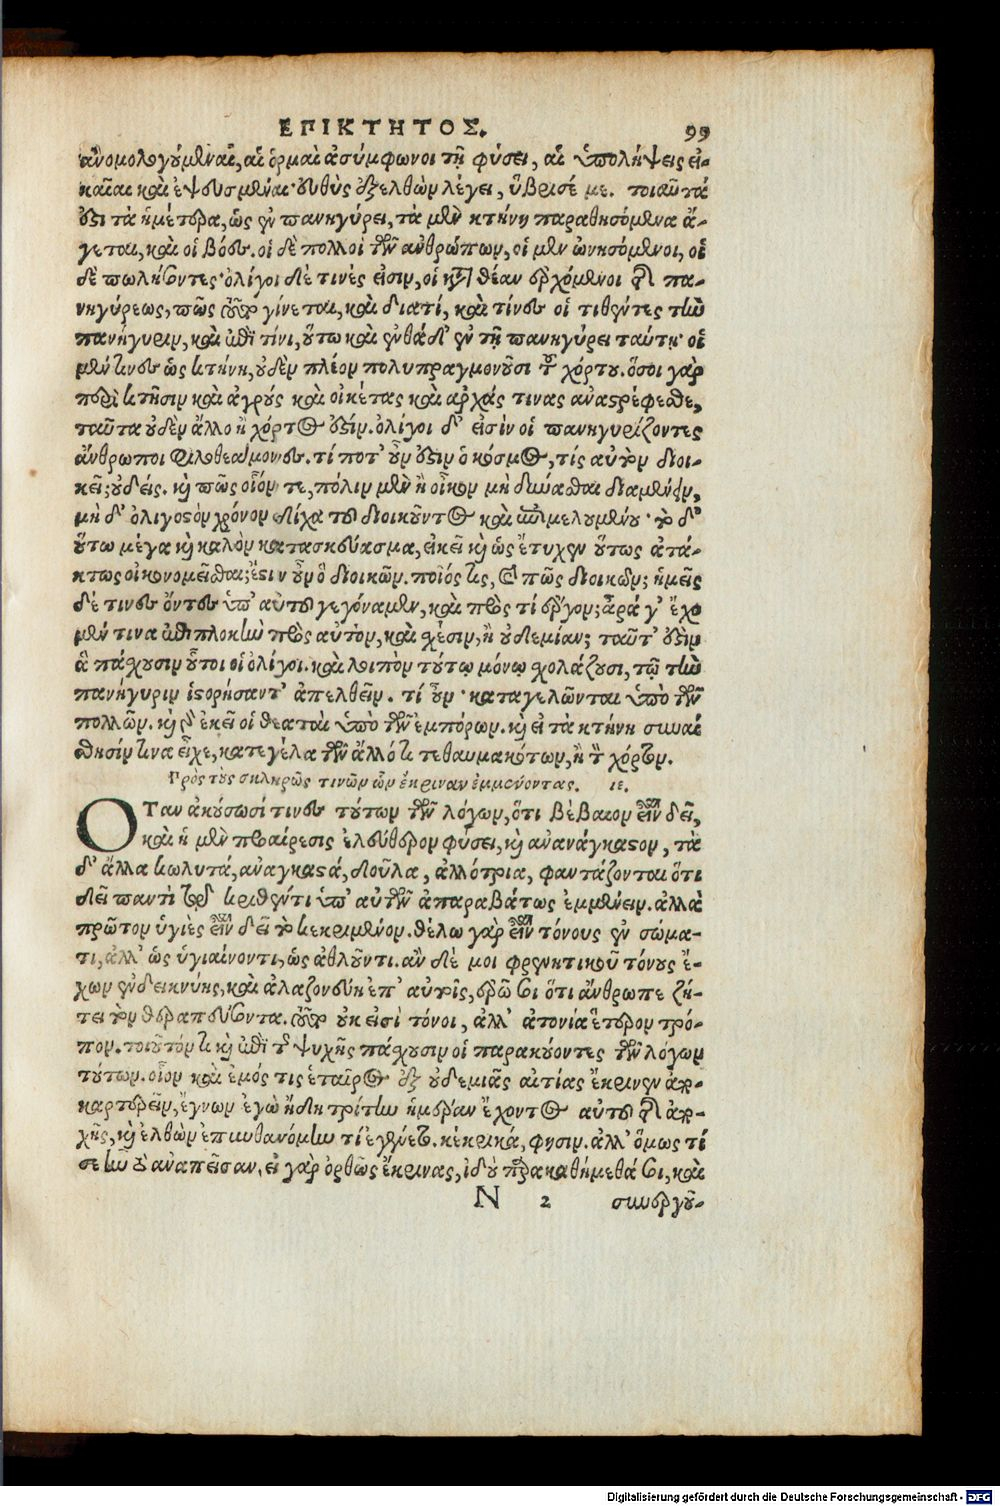 ΕΠΙΚΤΗΤΟΣ. 99
ἀνομολογούμεναι, αἱ ὁρμαὶ ἀσύμφωνοι τῇ φύσει, αἱ ὑπολήψεις εἰ-
καῖαι καὶ ἐψευσμέναι· εὐθὺς ἐξελθὼν λέγει, ὕβρισέ με. τοιαῦτά
ἐστι τὰ ἡμέτερα, ὡς ἐν πανηγύρει, τὰ μὲν κτήνη παραθησόμενα ἄ-
γεται, καὶ οἱ βόες. οἱ δὲ πολλοὶ τῶν ἀνθρώπων, οἱ μὲν ὠνησόμενοι, οἱ
δὲ πωλήσοντες· ὀλίγοι δέ τινές εἰσιν, οἱ κατὰ θέαν ἐρχόμενοι τῆς πα-
νηγύρεως, πῶς τοῦτο γίνεται, καὶ διατί, καὶ τίνες οἱ τιθέντες τὴν
πανήγυριν, καὶ ἐπὶ τίνι, οὕτω καὶ ἐνθάδ' ἐν τῇ πανηγύρει ταύτῃ· οἱ
μέν τινες ὡς κτήνη, οὐδὲν πλέον πολυπραγμονοῦσι τοῦ χόρτου. ὅσοι γὰρ
περὶ κτῆσιν καὶ ἀγροὺς καὶ οἰκέτας καὶ ἀρχάς τινας ἀναστρέφεσθε,
ταῦτα οὐδὲν ἄλλο ἢ χόρτος ἐστίν. ὀλίγοι δ' εἰσὶν οἱ πανηγυρίζοντες
ἄνθρωποι φιλοθεάμονες. τί ποτ' οὖν ἐστιν ὁ κόσμος, τίς αὐτὸν διοι-
κεῖ; οὐδείς. καὶ πῶς οἷόν τε, πόλιν μὲν ἢ οἶκον μὴ δύνασθαι διαμένειν,
μὴ δ' ὀλιγοστὸν χρόνον δίχα τοῦ διοικοῦντος καὶ ἐπιμελουμένου· τὸ δ'
οὕτω μέγα καὶ καλὸν κατασκεύασμα, εἰκῆ καὶ ὡς ἔτυχεν οὕτως ἀτά-
κτως οἰκονομεῖσθαι; ἔστιν οὖν ὁ διοικῶν. ποῖός τις, καὶ πῶς διοικῶν; ἡμεῖς
δέ τινες ὄντες ὑπ' αὐτοῦ γεγόναμεν, καὶ πρὸς τί ἔργον; ἆρά γ' ἔχο
μέν τινα ἐπιπλοκὴν πρὸς αὐτὸν, καὶ σχέσιν, ἢ οὐδεμίαν; ταῦτ' ἐστὶν
ἃ πάσχουσιν οὗτοι οἱ ὀλίγοι. καὶ λοιπὸν τούτῳ μόνῳ σχολάζουσι, τῷ τὴν
πανήγυριν ἱστορήσαντ' ἀπελθεῖν. τί οὖν· καταγελῶνται ὑπὸ τῶν
πολλῶν. καὶ γὰρ ἐκεῖ οἱ θεαταὶ ὑπὸ τῶν ἐμπόρων. καὶ εἰ τὰ κτήνη συναί
σθησίν τινα εἶχε, κατεγέλα τῶν ἄλλό τι τεθαυμακότων, ἢ τὸν χόρτον.
Πρὸς τοὺς σκληρῶς τινῶν ὧν ἔκριναν ἐμμένοντας. ιε.
ΟΤαν ἀκούσωσί τινες τούτων τῶν λόγων, ὅτι βέβαιον εἶναι δεῖ,
καὶ ἡ μὲν προαίρεσις ἐλεύθερον φύσει, καὶ ἀνανάγκαστον, τὰ
δ' ἄλλα κωλυτά, ἀναγκαστά, δοῦλα, ἀλλότρια, φαντάζονται ὅτι
δεῖ παντὶ τῷ κριθέντι ὑπ' αὐτῶν ἀπαραβάτως ἐμμένειν. ἀλλὰ
πρῶτον ὑγιὲς εἶναι δεῖ τὸ κεκριμένον. θέλω γὰρ εἶναι τόνους ἐν σώμα-
τι, ἀλλ' ὡς ὑγιαίνοντι, ὡς ἀθλοῦντι. ἂν δέ μοι φρενητικοῦ τόνους ἔ-
χων ἐνδεικνύῃς, καὶ ἀλαζονεύῃ ἐπ' αὐτοῖς, ἐρῶ σοι ὅτι ἄνθρωπε ζή-
τει τὸν θεραπεύσοντα. τοῦτο οὐκ εἰσὶ τόνοι, ἀλλ' ἀτονία ἕτερον τρό-
πον. τοιοῦτόν τι καὶ ἐπὶ τῆς ψυχῆς πάσχουσιν οἱ παρακούοντες τῶν λόγων
τούτων. οἷον καὶ ἐμός τις ἑταῖρος ἐξ οὐδεμιᾶς αἰτίας ἔκρινεν ἀπο-
καρτερεῖν, ἔγνων ἐγὼ ἤδη τρίτην ἡμέραν ἔχοντος αὐτοῦ τῆς ἀπο-
χῆς, καὶ ἐλθὼν ἐπυνθανόμην τί ἐγένετο. κέκρικά, φησιν. ἀλλ' ὅμως τί
σε ἦν τὸ ἀναπεῖσαν, εἰ γὰρ ὀρθῶς ἔκρινας, ἰδοὺ παρακαθήμεθά σοι, καὶ
N 2 συνεργοῦ-
Digitalisierung gefördert durch die Deutsche Forschungsgemeinschaft - DFG